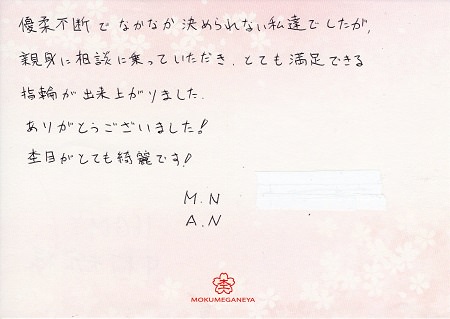 優柔不断でなかなか決められない私達でしたが、
親身に相談に乗っていただき、とても満足できる
指輪が出来上がりました。
ありがとうございました!
杢目がとても綺麗です!
M.N
A.N
MOKUMEGANEYA